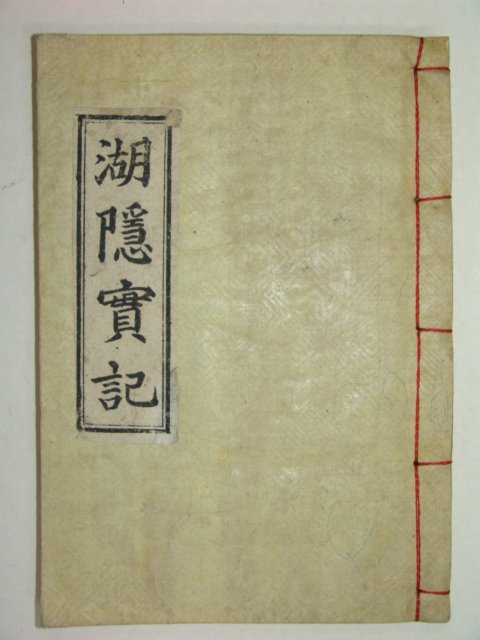 湖隱實記